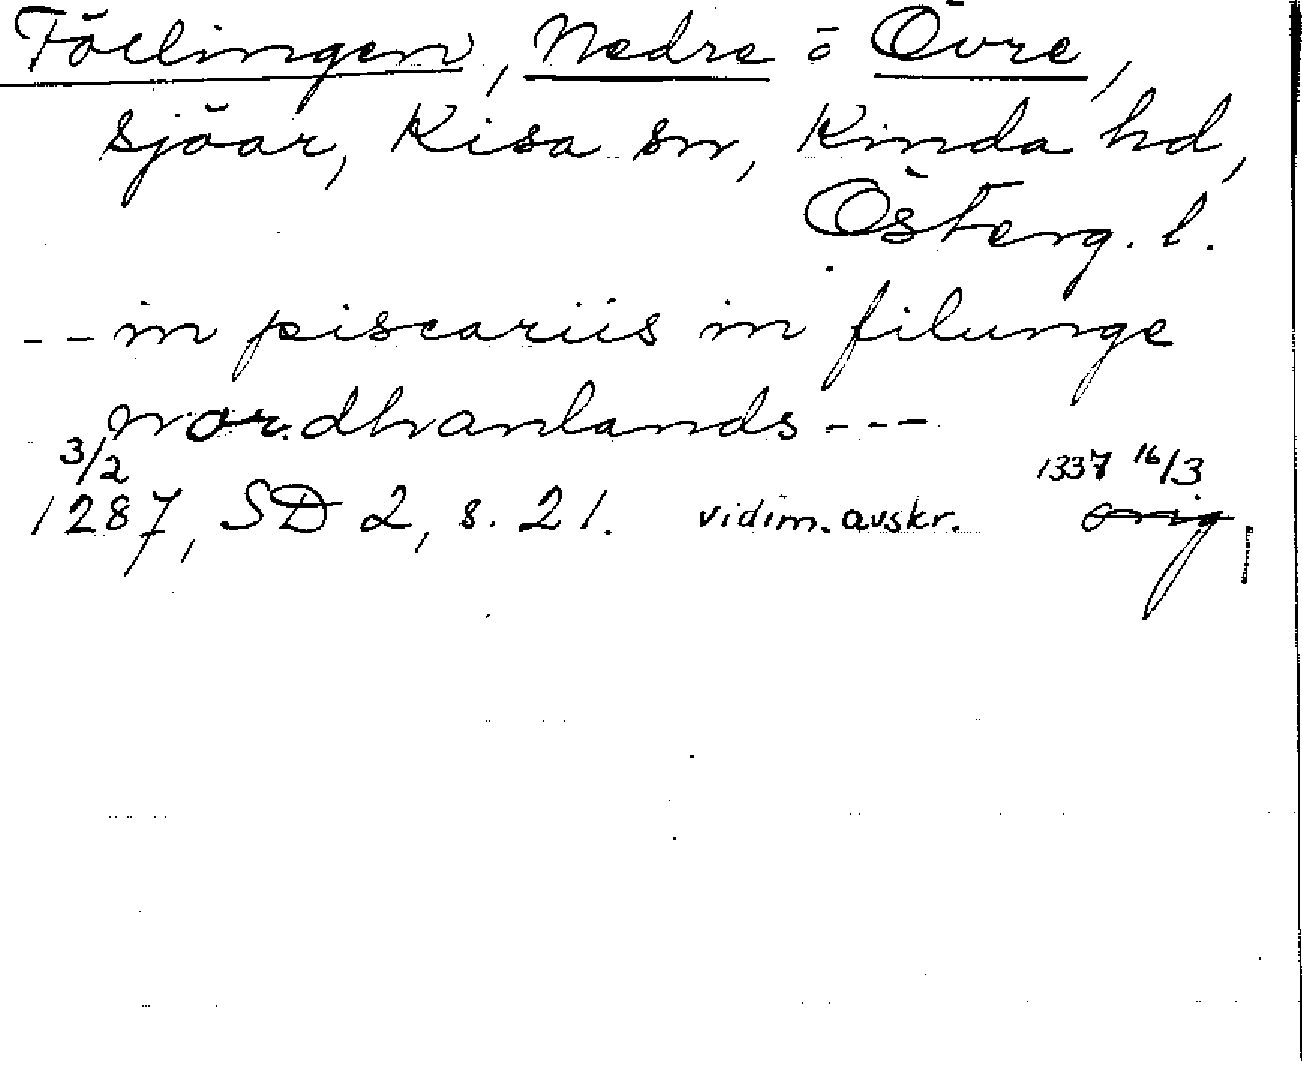 Föllingen, Nedre o Övre,
sjöar, Kisa sn, Kinda hd,
Österg. l.
-- in piscariis in filunge
nordhanlands ---
3/2 1337 16/3
1287, SD 2, s. 21. vidim. avskr. orig,